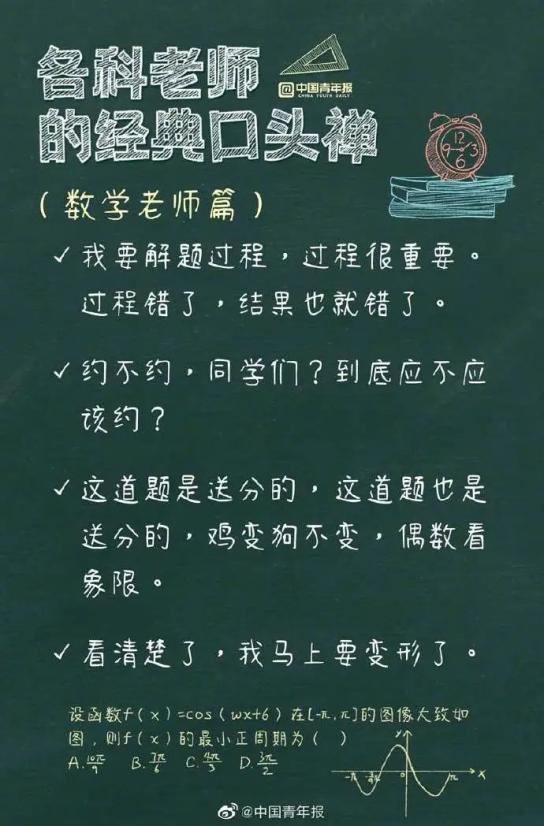 各科老师
@中国青年报
CHINA YOUTH DAILY
的经典口头禅
12
9 3
6
(数学老师篇)
✓我要解题过程,过程很重要。
过程错了,结果也就错了。
✓约不约,同学们?到底应不应
该约?
✓这道题是送分的,这道题也是
送分的,鸡变狗不变,偶数看
象限。
✓看清楚了,我马上要变形了。
设函数f(x)=cos(wx+6)在[-π,π]的图像大致如
图,则f(x)的最小正周期为( )
A.10π/9 B.7π/6 C.4π/3 D.3π/2
y
-π 0 π x
@中国青年报